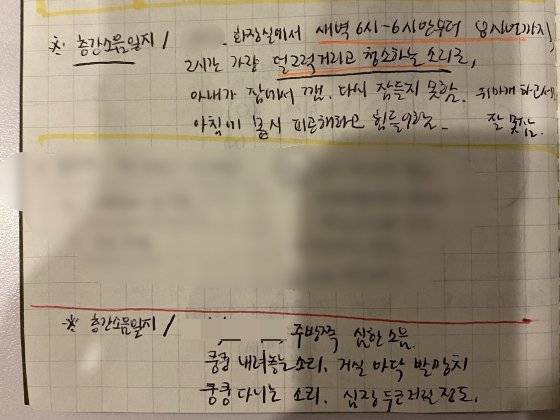 ※ 층간소음일지 / 화장실에서 새벽 6시~6시반부터 8시반까지
2시간 가량 덜그럭거리고 청소하는 소리로,
아내가 잠에서 깸. 다시 잠들지 못함. 귀마개 하고서
아침에 몹시 피곤해하고 힘들어함. 잘 못잠.
※ 층간소음일지 / 주방쪽 심한 소음.
쿵쿵 내려놓는 소리. 거실 바닥 발망치
쿵쿵 다니는 소리. 심장 두근거릴 정도.